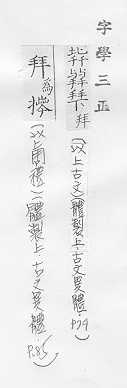 字學三正
拜(以上古文)(體製上·古文異體·P79)
拜為(以上周禮)(體製上·古文異體·P.85)